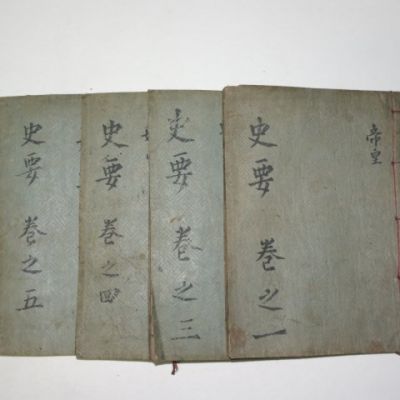 帝皇
史要 卷之一
史要 卷之三
史要 卷之四
史要 卷之五